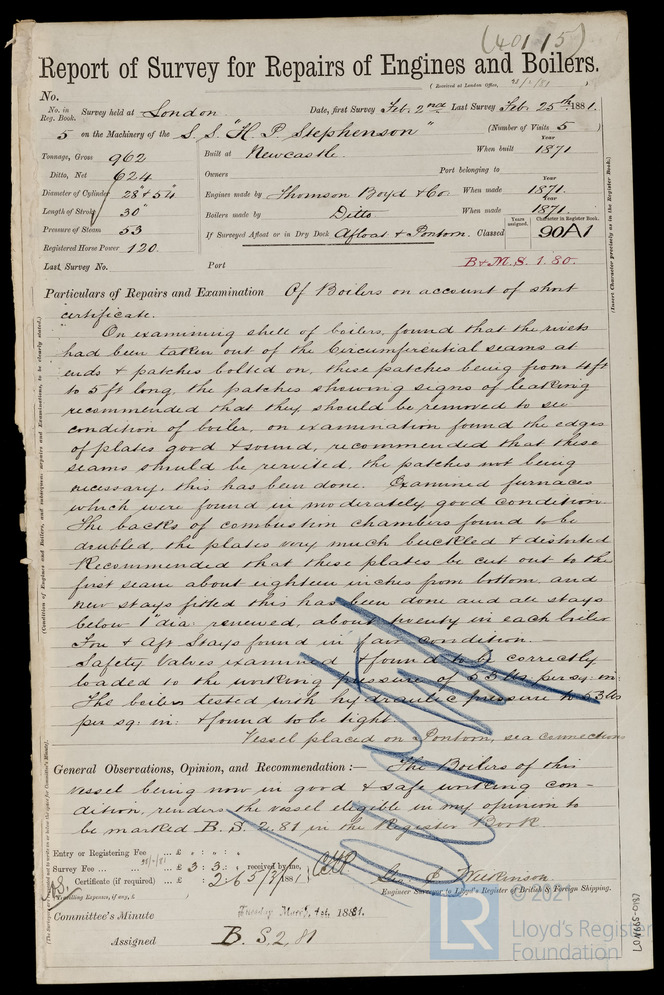 (401/5)
Report of Survey for Repairs of Engines and Boilers.
(Received at London Office,
No.
No. in Reg. Book. Survey held at London Date, first Survey Feb. 2nd Last Survey Feb. 25th 1881.
5 on the Machinery of the S.S. "H. P. Stephenson" (Number of Visits 5)
Tonnage, Gross 962 Built at Newcastle. When built Year 1871
Ditto, Net 624 Owners Port belonging to
Diameter of Cylinder 28" & 54" Engines made by Thomson Boyd & Co. When made Year 1871.
Length of Stroke 30" Boilers made by Ditto When made Year 1871.
Pressure of Steam 53 If Surveyed Afloat or in Dry Dock Afloat & Pontoon. Classed Years assigned. Character in Register Book. 90A1
Registered Horse Power 120.
Last Survey No. Port B & M. S. 1. 80.
Particulars of Repairs and Examination Of Boilers on account of short
certificate.
On examining shell of boilers, found that the rivets
had been taken out of the Circumferential seams at
ends & patches bolted on, these patches being from 4 ft
to 5 ft long, the patches showing signs of leaking
recommended that they should be removed to see
condition of boiler, on examination found the edges
of plates good & sound, recommended that these
seams should be rerivited, the patches not being
necessary, this has been done. Examined furnaces
which were found in moderately good condition.
The backs of combustion chambers found to be
doubled, the plates very much buckled & distorted
Recommended that these plates be cut out to the
first seam about eighteen inches from bottom, and
new stays fitted this has been done and all stays
below 1" dia: renewed, about twenty in each boiler
Fore & Aft Stays found in fair condition.
Safety Valves examined & found to be correctly
loaded to the working pressure of 53 lbs per sq. in:
The boilers tested with hydraulic pressure to 53 lbs
per sq: in: & found to be tight.
Vessel placed on Pontoon, sea connections
General Observations, Opinion, and Recommendation :— The Boilers of this
vessel being now in good & safe working con-
dition, renders the vessel eligible in my opinion to
be marked B. S. 2. 81 in the Register Book
Entry or Registering Fee £ : :
Survey Fee £ 3 : 3 : received by me,
Certificate (if required) £ : 2 6 5/3/1881
Travelling Expenses, if any, £
Geo. J. Wilkinson.
Engineer Surveyor to Lloyd's Register of British & Foreign Shipping.
Committee's Minute Tuesday March 1st, 1881.
Assigned B. S. 2. 81
(Insert Character precisely as in the Register Book.)
LR
© 2021
Lloyd's Register
Foundation
LON665-0187